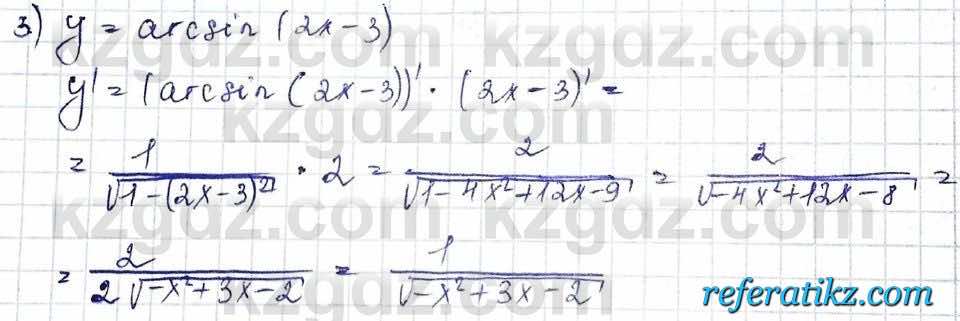 3) y = arcsin (2x-3)
y' = (arcsin (2x-3))' · (2x-3)' =
= 1/√(1-(2x-3)²) · 2 = 2/√(1-4x²+12x-9) = 2/√(-4x²+12x-8) =
= 2/(2√(-x²+3x-2)) = 1/√(-x²+3x-2)
kzgdz.com
kzgdz.com
kzgdz.com
kzgdz.com
referatikz.com